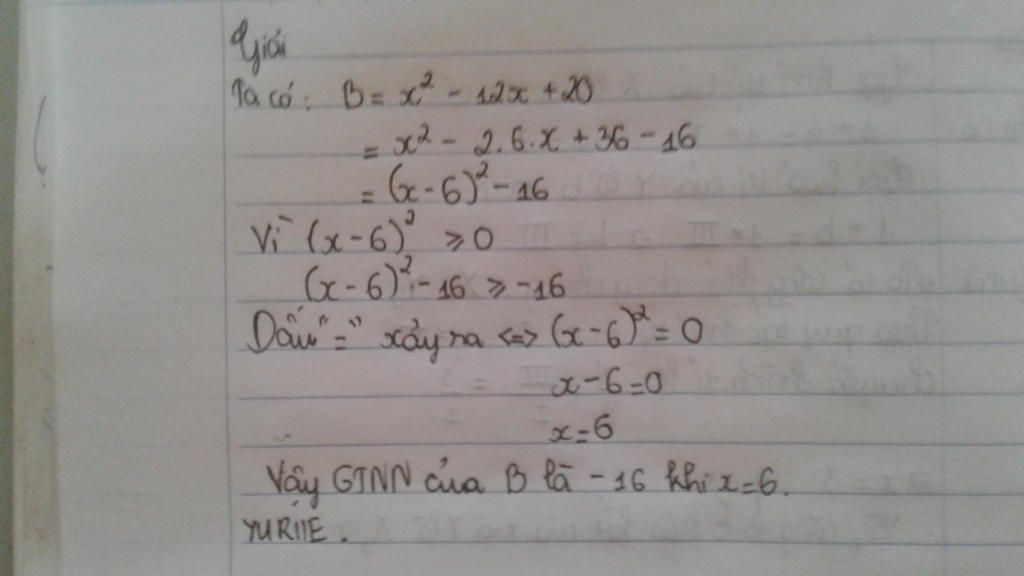 Giải
Ta có: B = x² - 12x + 20
= x² - 2.6.x + 36 - 16
= (x - 6)² - 16
Vì (x - 6)² ≥ 0
(x - 6)² - 16 ≥ -16
Dấu "=" xảy ra <=> (x - 6)² = 0
x - 6 = 0
x = 6
Vậy GTNN của B là - 16 khi x = 6.
YURIIE.